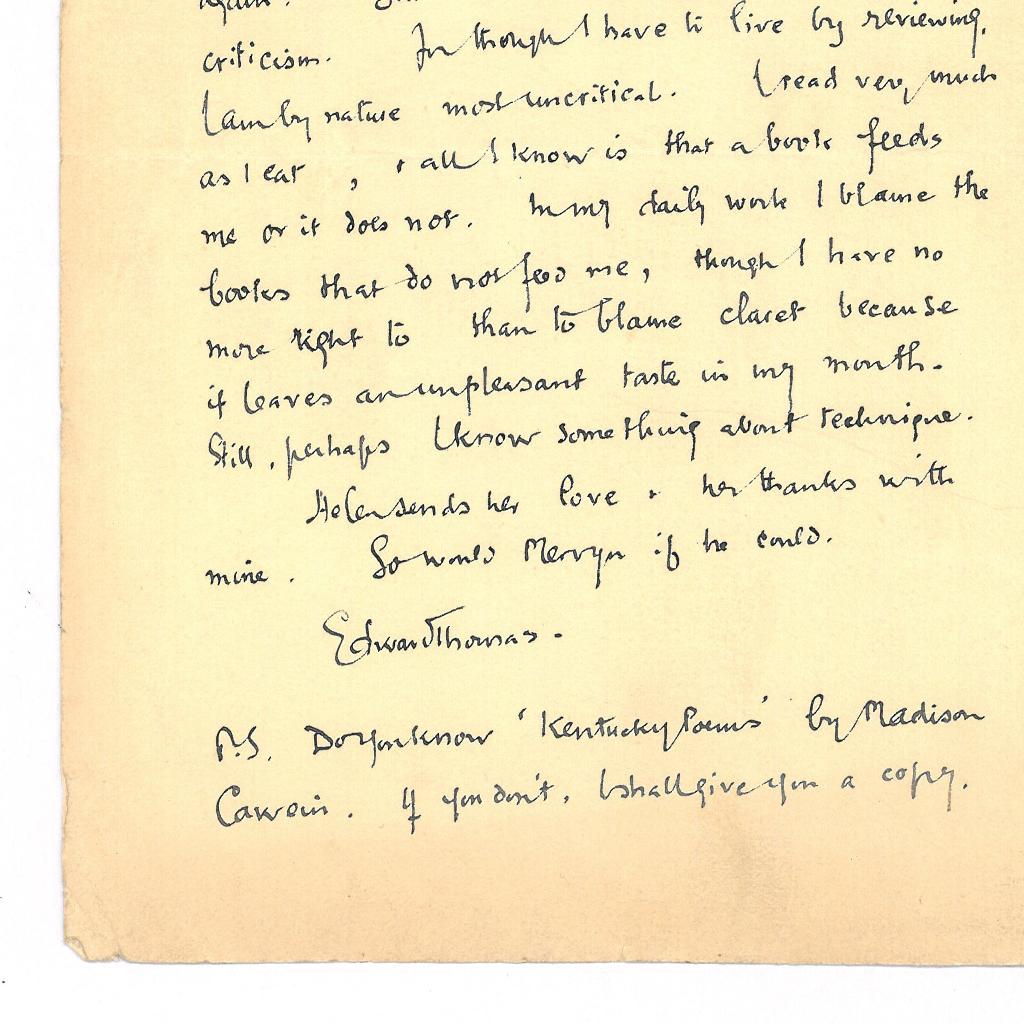 again.
criticism. For though I have to live by reviewing,
I am by nature most uncritical. I read very much
as I eat , & all I know is that a book feeds
me or it does not. In my daily work I blame the
books that do not feed me, though I have no
more right to than to blame claret because
it leaves an unpleasant taste in my mouth.
Still, perhaps I know something about technique.
Helen sends her love & her thanks with
mine. So would Mervyn if he could.
Edward Thomas.
P.S. Do you know 'Kentucky Poems' by Madison
Cawein. If you don't, I shall give you a copy.